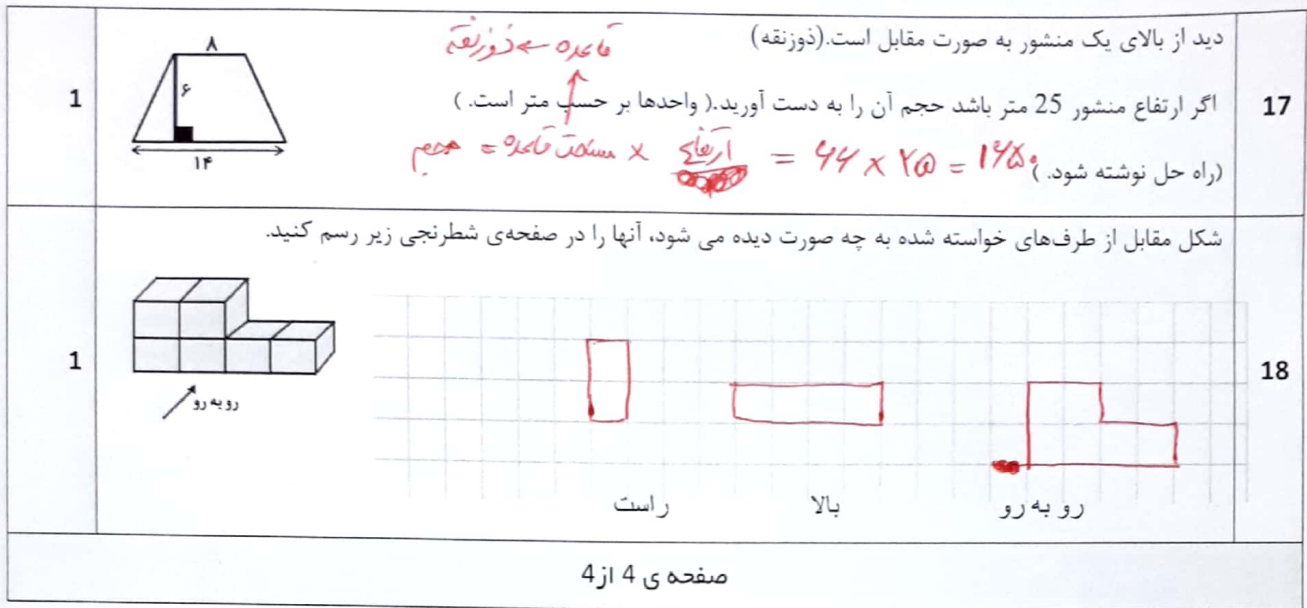 17
دید از بالای یک منشور به صورت مقابل است.(ذوزنقه)
قاعده ← ذوزنقه
اگر ارتفاع منشور 25 متر باشد حجم آن را به دست آورید.( واحدها بر حسب متر است. )
(راه حل نوشته شود. )
حجم = مساحت قاعده × ارتفاع = ۶۶ × ۲۵ = ۱۶۵۰
۸
۶
۱۴
1
18
شکل مقابل از طرف‌های خواسته شده به چه صورت دیده می شود، آنها را در صفحه‌ی شطرنجی زیر رسم کنید.
رو به رو
رو به رو
بالا
راست
1
صفحه ی 4 از4